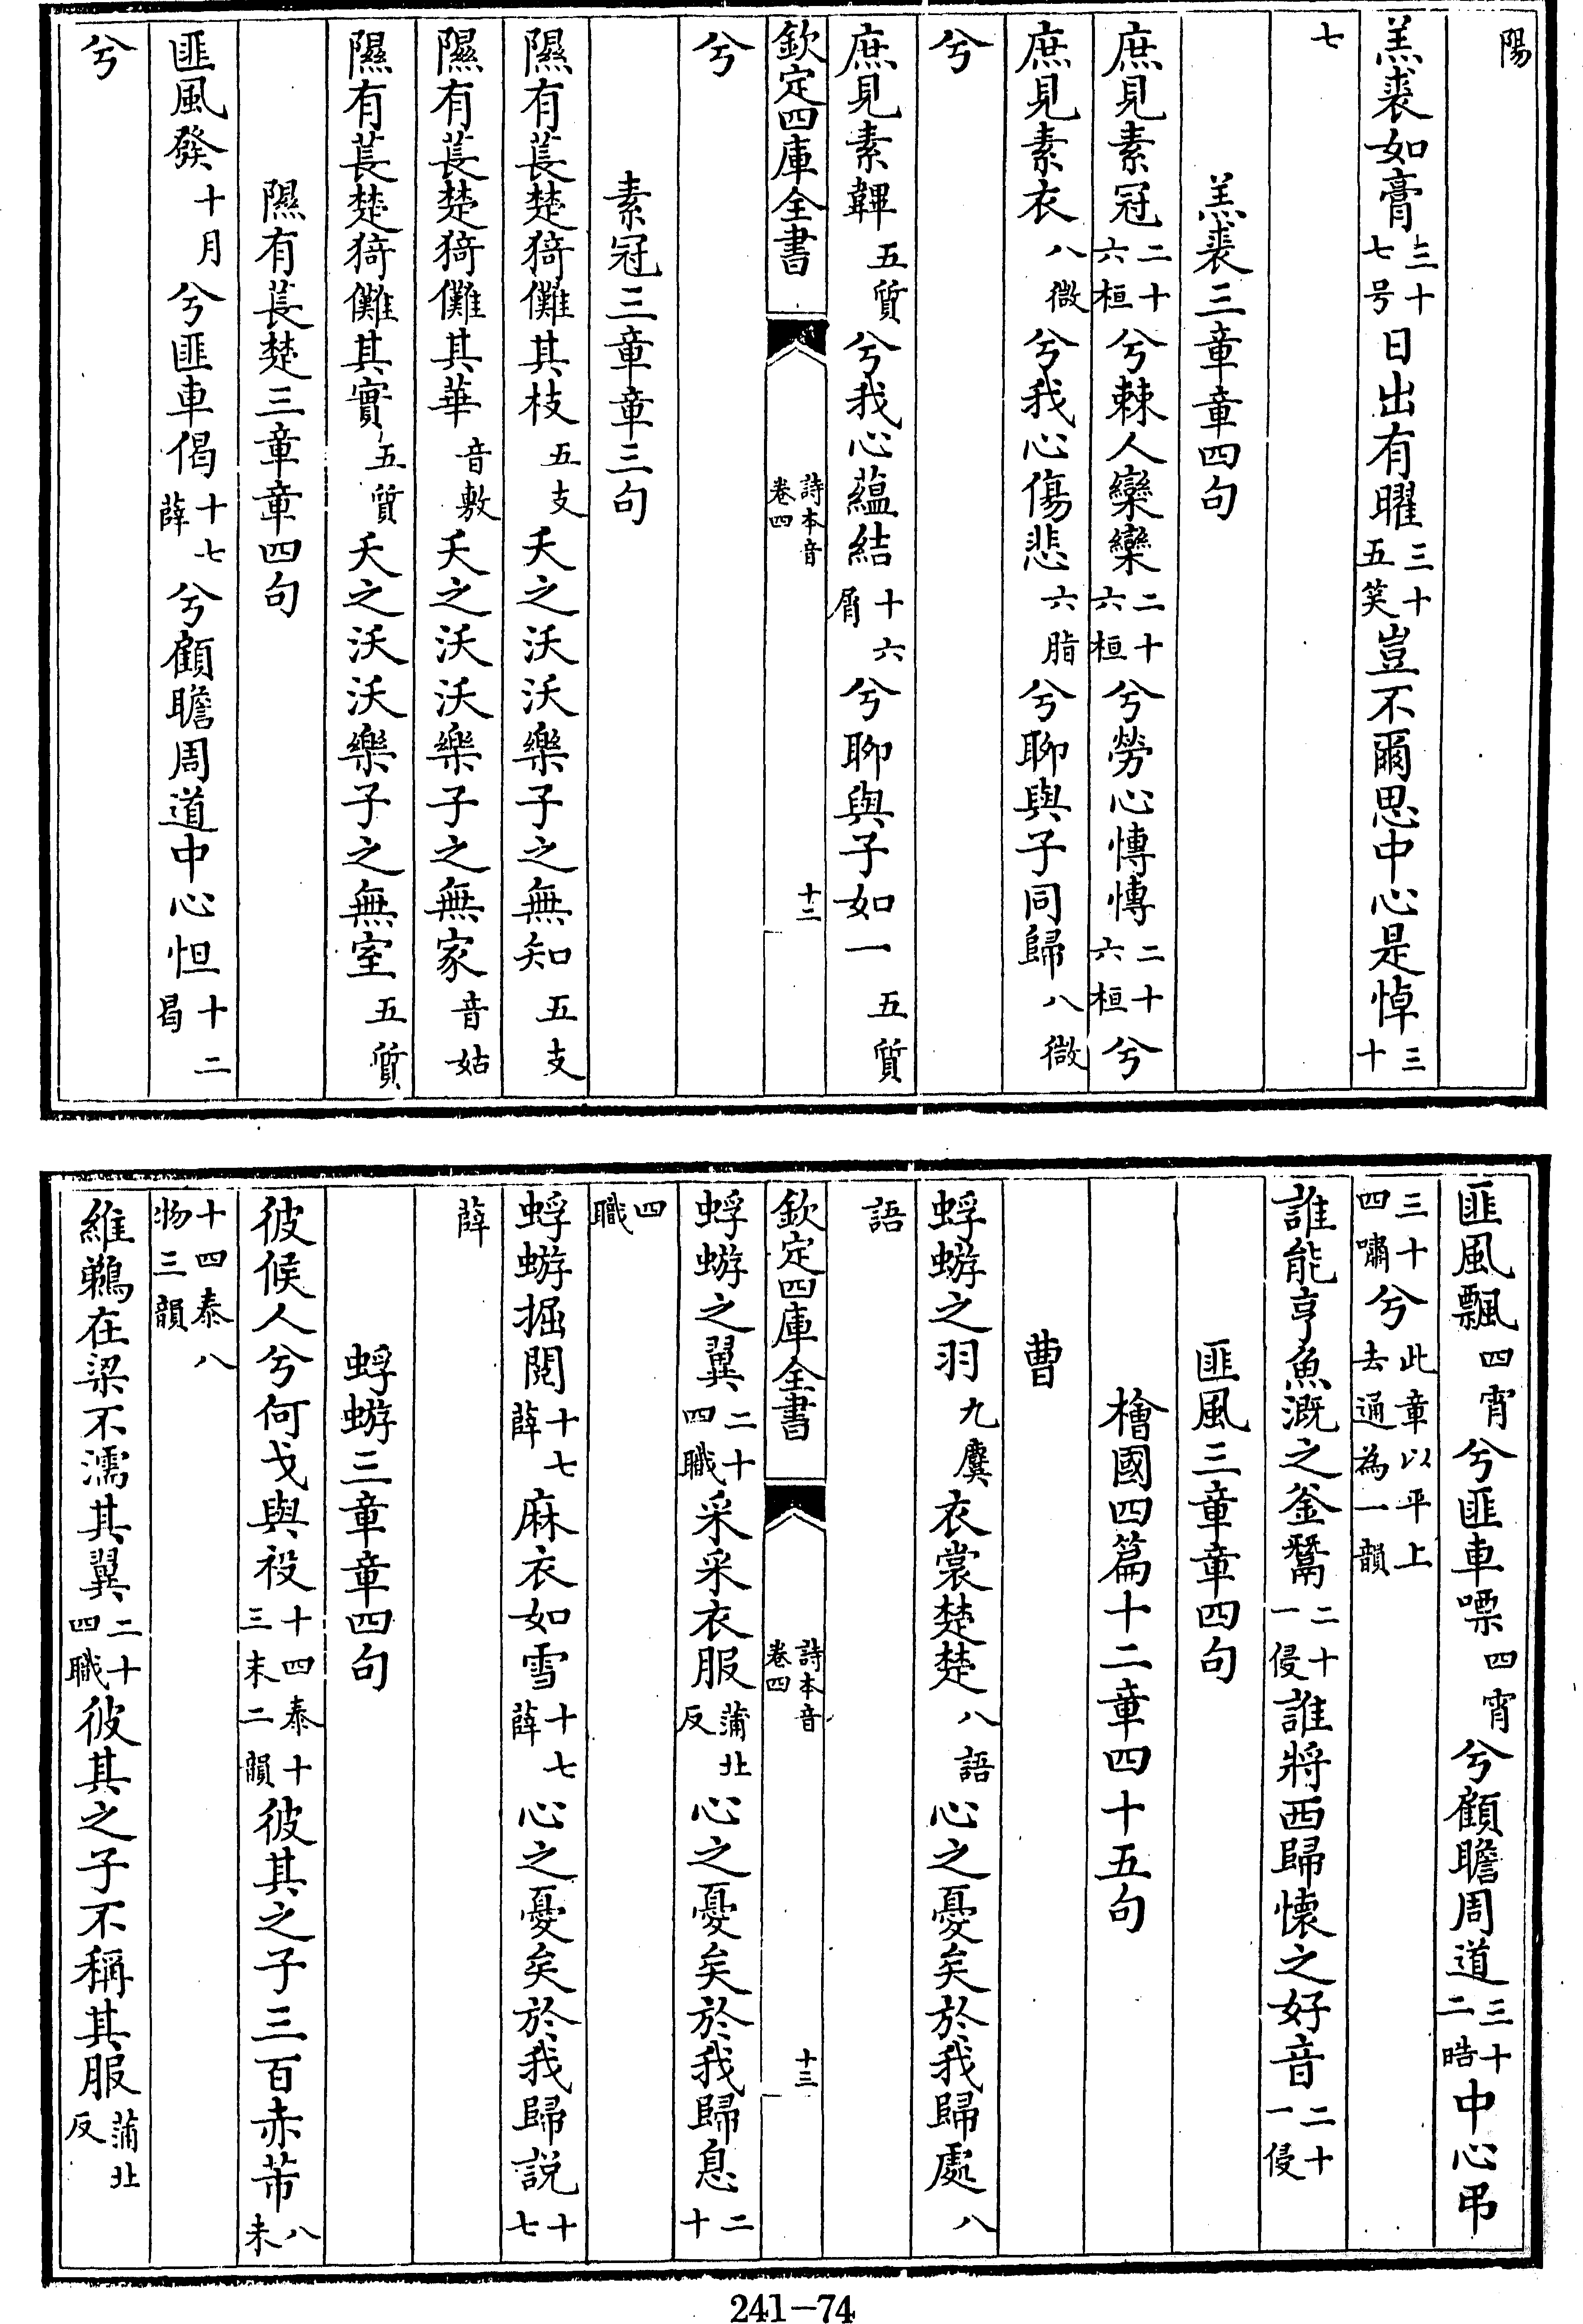 陽
羔裘如膏三十七号日出有曜三十五笑豈不爾思中心是悼三十
七
羔裘三章章四句
庶見素冠二十六桓兮棘人欒欒二十六桓兮勞心慱慱二十六桓兮
庶見素衣八微兮我心傷悲六脂兮聊與子同歸八微
兮
庶見素韠五質兮我心蘊結十六屑兮聊與子如一五質
欽定四庫全書 詩本音卷四 十二
兮
素冠三章章三句
隰有萇楚猗儺其枝五支夭之沃沃樂子之無知五支
隰有萇楚猗儺其華音敷夭之沃沃樂子之無家音姑
隰有萇楚猗儺其實五質夭之沃沃樂子之無室五質
隰有萇楚三章章四句
匪風發十月兮匪車偈十七薛兮顧瞻周道中心怛十二曷
兮
匪風飄四宵兮匪車嘌四宵兮顧瞻周道三十二晧中心弔
三十四嘯兮此章以平上去通為一韻
誰能亨魚溉之釜鬵二十一侵誰將西歸懷之好音二十一侵
匪風三章章四句
檜國四篇十二章四十五句
曹
蜉蝣之羽九麌衣裳楚楚八語心之憂矣於我歸處八
語
欽定四庫全書 詩本音卷四 十三
蜉蝣之翼二十四職采采衣服蒲北反心之憂矣於我歸息二十
四職
蜉蝣掘閱十七薛麻衣如雪十七薛心之憂矣於我歸説十七
薛
蜉蝣三章章四句
彼候人兮何戈與祋十四泰十三末二韻彼其之子三百赤芾八未
十四泰八物三韻
維鵜在梁不濡其翼二十四職彼其之子不稱其服蒲北反
241-74